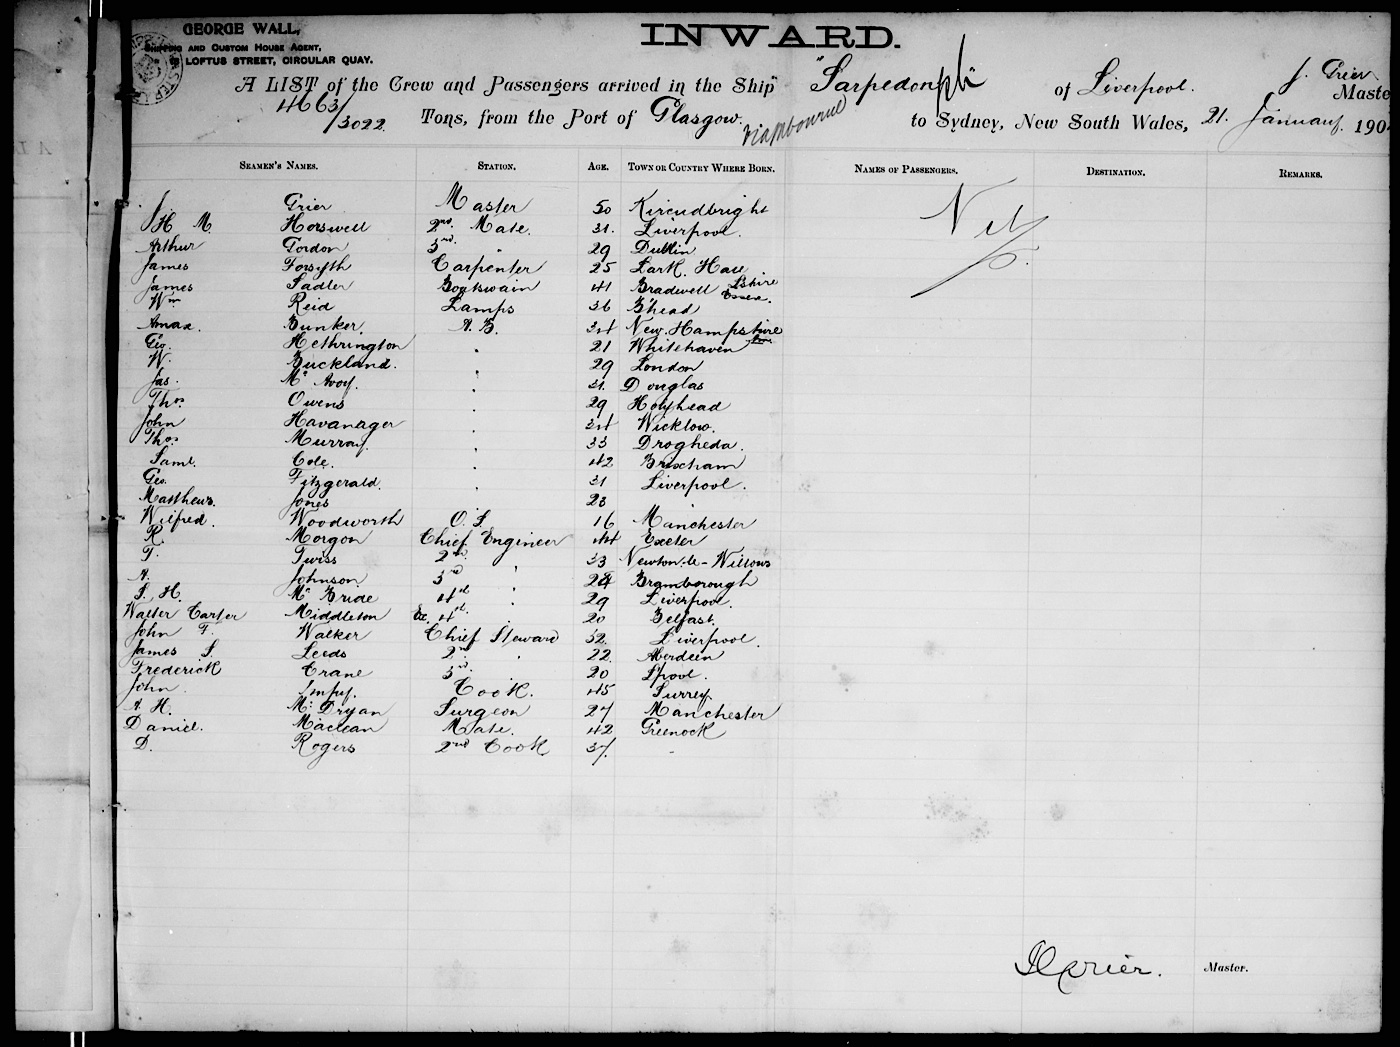 GEORGE WALL,
Shipping and Custom House Agent,
LOFTUS STREET, CIRCULAR QUAY.
INWARD.
A LIST of the Crew and Passengers arrived in the Ship "Sarpedon" of Liverpool. J. Grier Master
4663/3022 Tons, from the Port of Glasgow. via Melbourne to Sydney, New South Wales, 21. January 190
Seamen's Names. Station. Age. Town or Country Where Born. Names of Passengers. Destination. Remarks.
J. Grier Master 50 Kircudbright Nil
H M Horswell 2nd. Mate. 31. Liverpool.
Arthur Gordon 3rd. " 29 Dublin
James Forsyth Carpenter 25 Lark Hall
James Sadler Boatswain 41 Bradwell Essex.
Wm Reid Lamps 36 B'head
Amax. Bunker. A.B. 34 New. Hampshire
Geo. Hethrington " 21 Whitehaven
W. Buckland. " 29 London
Jas. Mc Avoy. " 31. Douglas
Thos. Owens " 29 Holyhead
John Kavanager " 34 Wicklow.
Thos. Murray. " 33 Drogheda.
Saml. Cole. " 42 Brixham
Geo. Fitzgerald. " 31 Liverpool.
Matthews. Jones 23
Wilfred. Woodworth O.S. 16 Manchester
R. Morgon Chief Engineer 44 Exeter
T. Twiss 2nd. " 33 Newton-le-Willows
A. Johnson 3rd " Bramborough
S. H. Mc Bride 4th " 29 Liverpool.
Walter Carter Middleton Ex. 4th. " 20 Belfast.
John F. Walker Chief Steward 32. Liverpool.
James S. Leeds 2nd " 22. Aberdeen
Frederick Crane 3rd. 20 L'pool.
John Cook. 45 Surrey.
A H. Mc Dryan Surgeon 27 Manchester
Daniel. Maclean Mate. 42 Greenock
D. Rogers 2nd Cook 37. "
J Grier. Master.